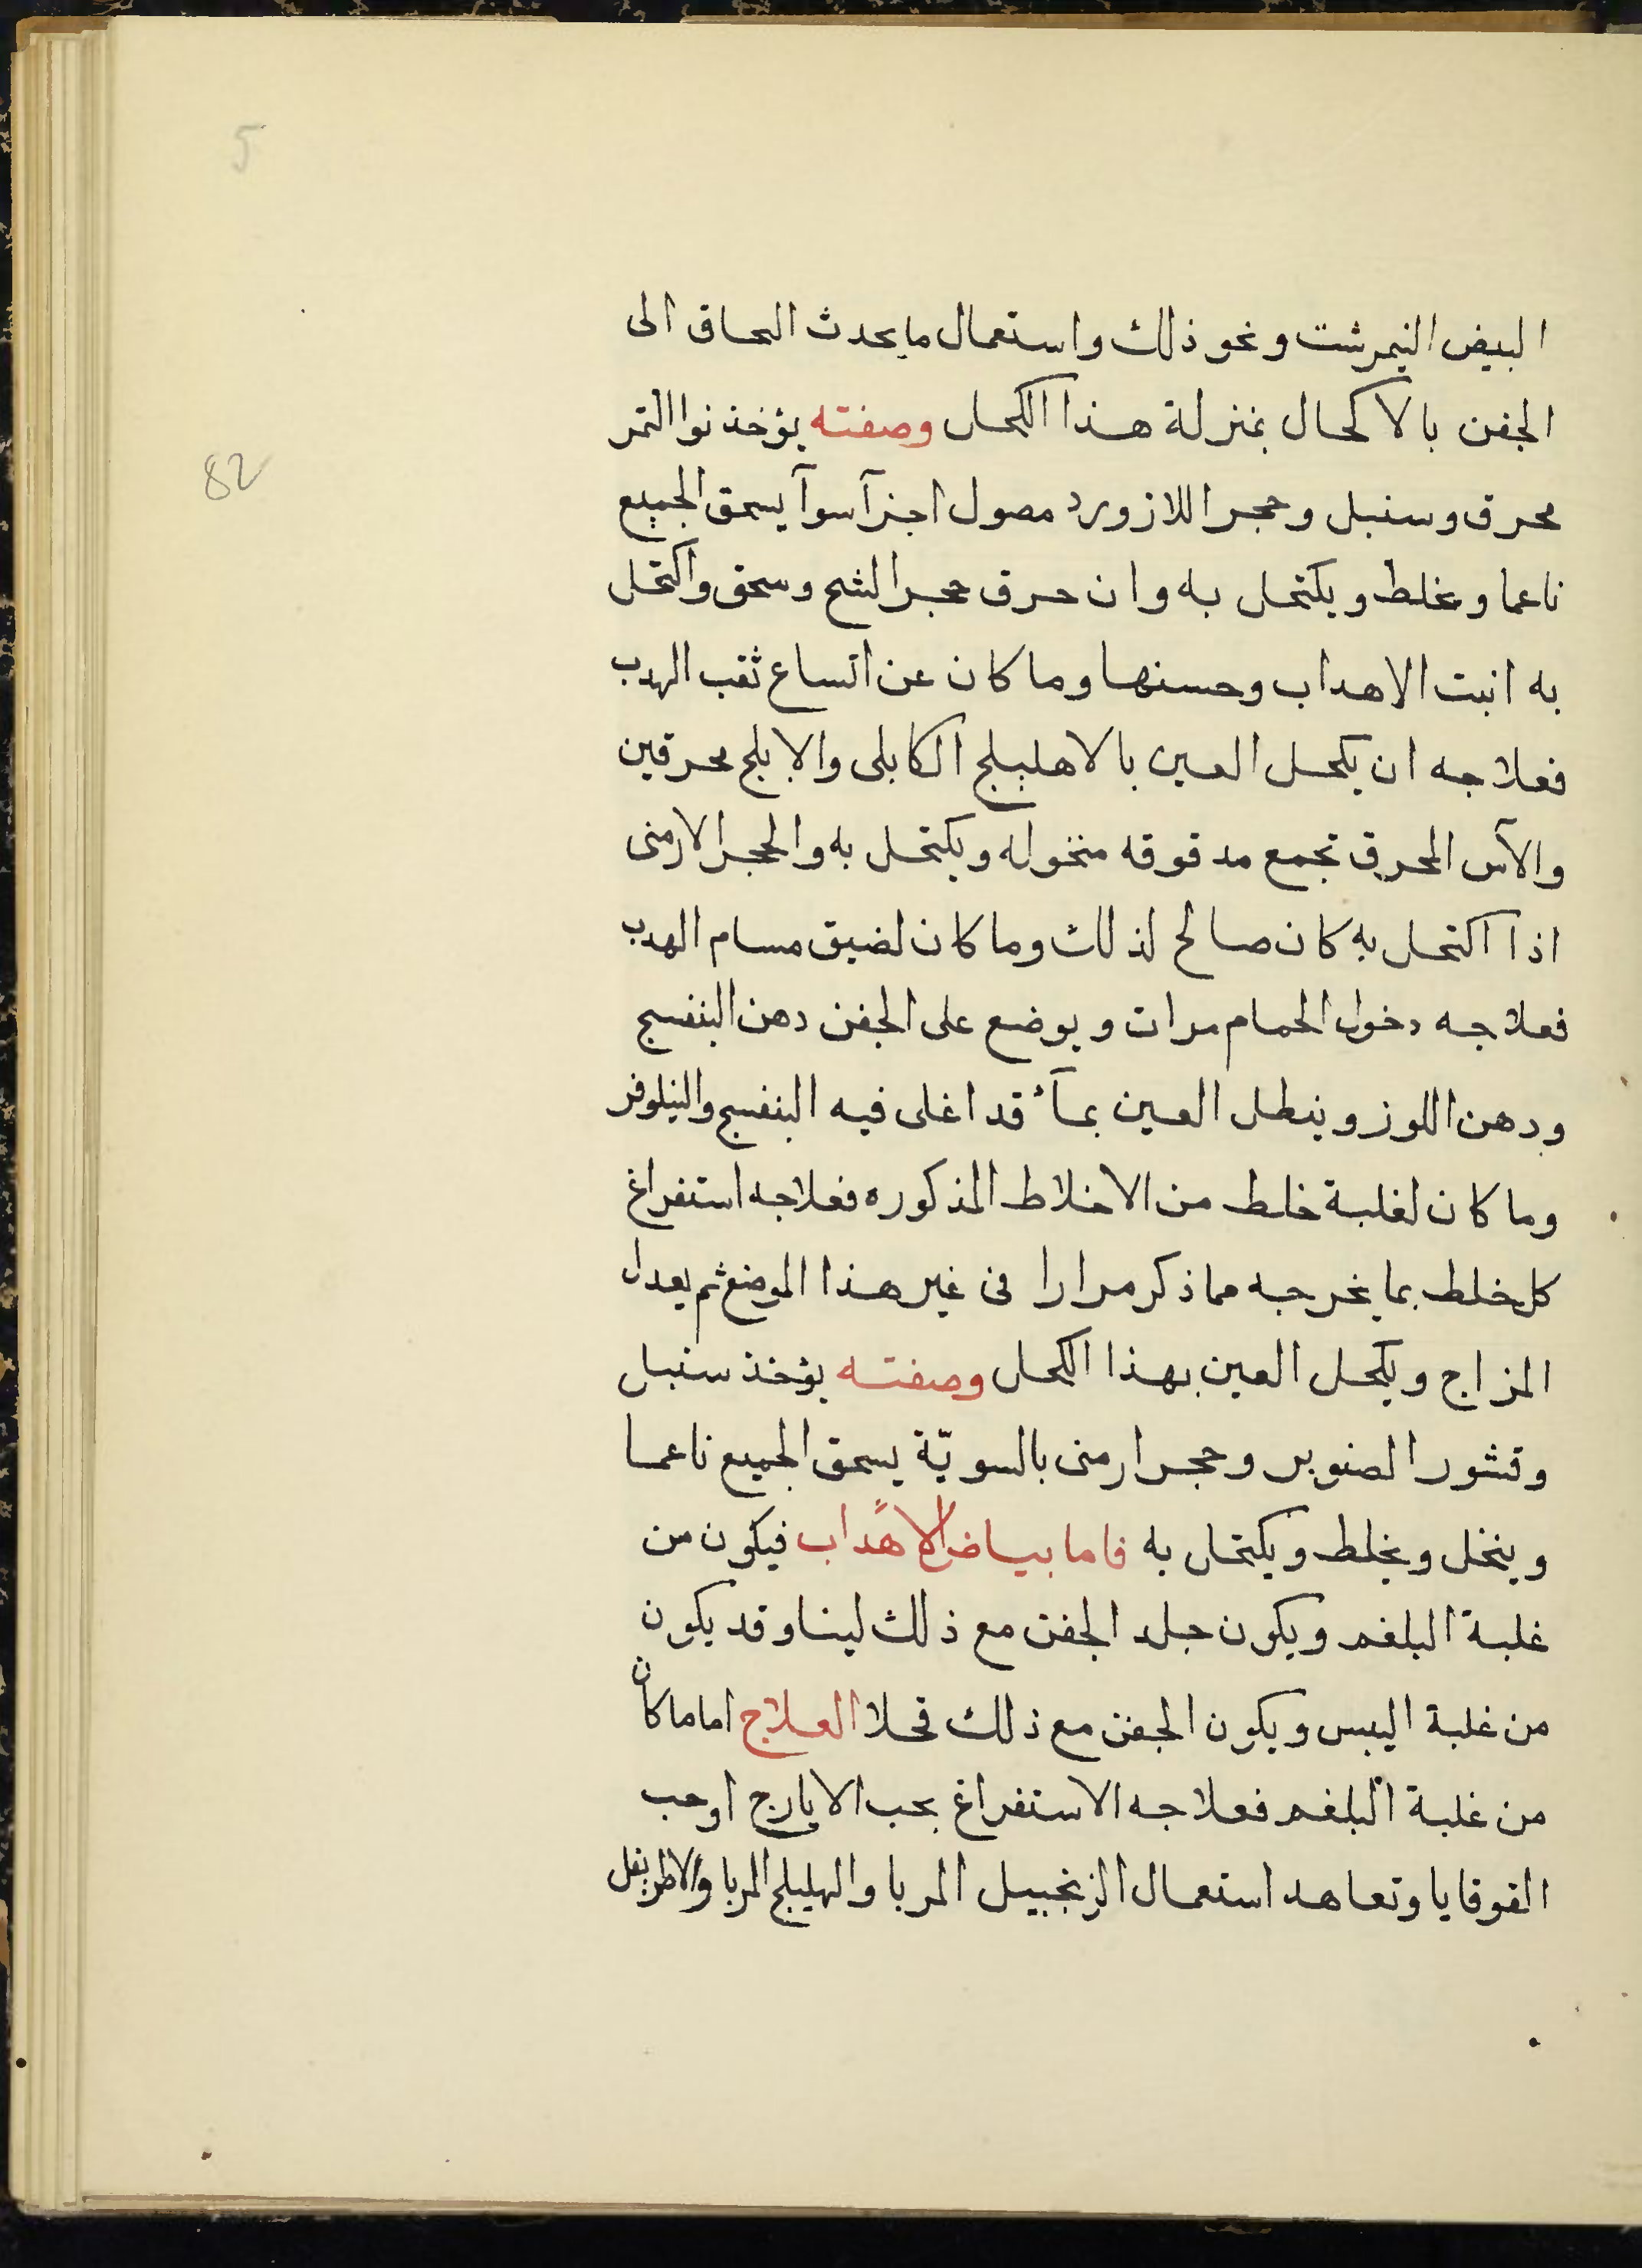 5
البيض النيمرشت ونحو ذلك واستعمال ما يحدث المحاق الى
الجفن بالاكحال بمنزلة هذا الكحل وصفته يؤخذ نوا التمر
82
محرق وسنبل وحجر اللازورد مصول اجزآ سوآ يسحق الجميع
ناعما ويخلط ويكتحل به وان حرق حجر الشح وسحق واكتحل
به انبت الاهداب وحسنها وما كان عن اتساع ثقب الهدب
فعلاجه ان يكحل العين بالاهليلج الكابلى والابلج محرقين
والآس المحرق تجمع مدقوقه منخوله ويكتحل به والحجر الارمنى
اذا اكتحل به كان صالح لذلك وما كان لضيق مسام الهدب
فعلاجه دخول الحمام مرات ويوضع على الجفن دهن البنفسج
ودهن اللوز وينطل العين بمآء قد اغلى فيه البنفسج والنيلوفر
وما كان لغلبة خلط من الاخلاط المذكوره فعلاجه استفراغ
كل خلط بما يخرجه مما ذكر مرارا فى غير هذا الموضع ثم يعدل
المزاج ويكحل العين بهذا الكحل وصفته يؤخذ سنبل
وقشور الصنوبر وحجر ارمنى بالسويّة يسحق الجميع ناعما
وينخل ويخلط ويكتحل به فاما بياض الاهداب فيكون من
غلبة البلغم ويكون جلد الجفن مع ذلك لينا وقد يكون
من غلبة اليبس ويكون الجفن مع ذلك قحلا العلاج اما ما كان
من غلبة البلغم فعلاجه الاستفراغ بحب الايارج او حب
القوقايا وتعاهد استعمال الزنجبيل المربا والهليلج المربا والاطريفل